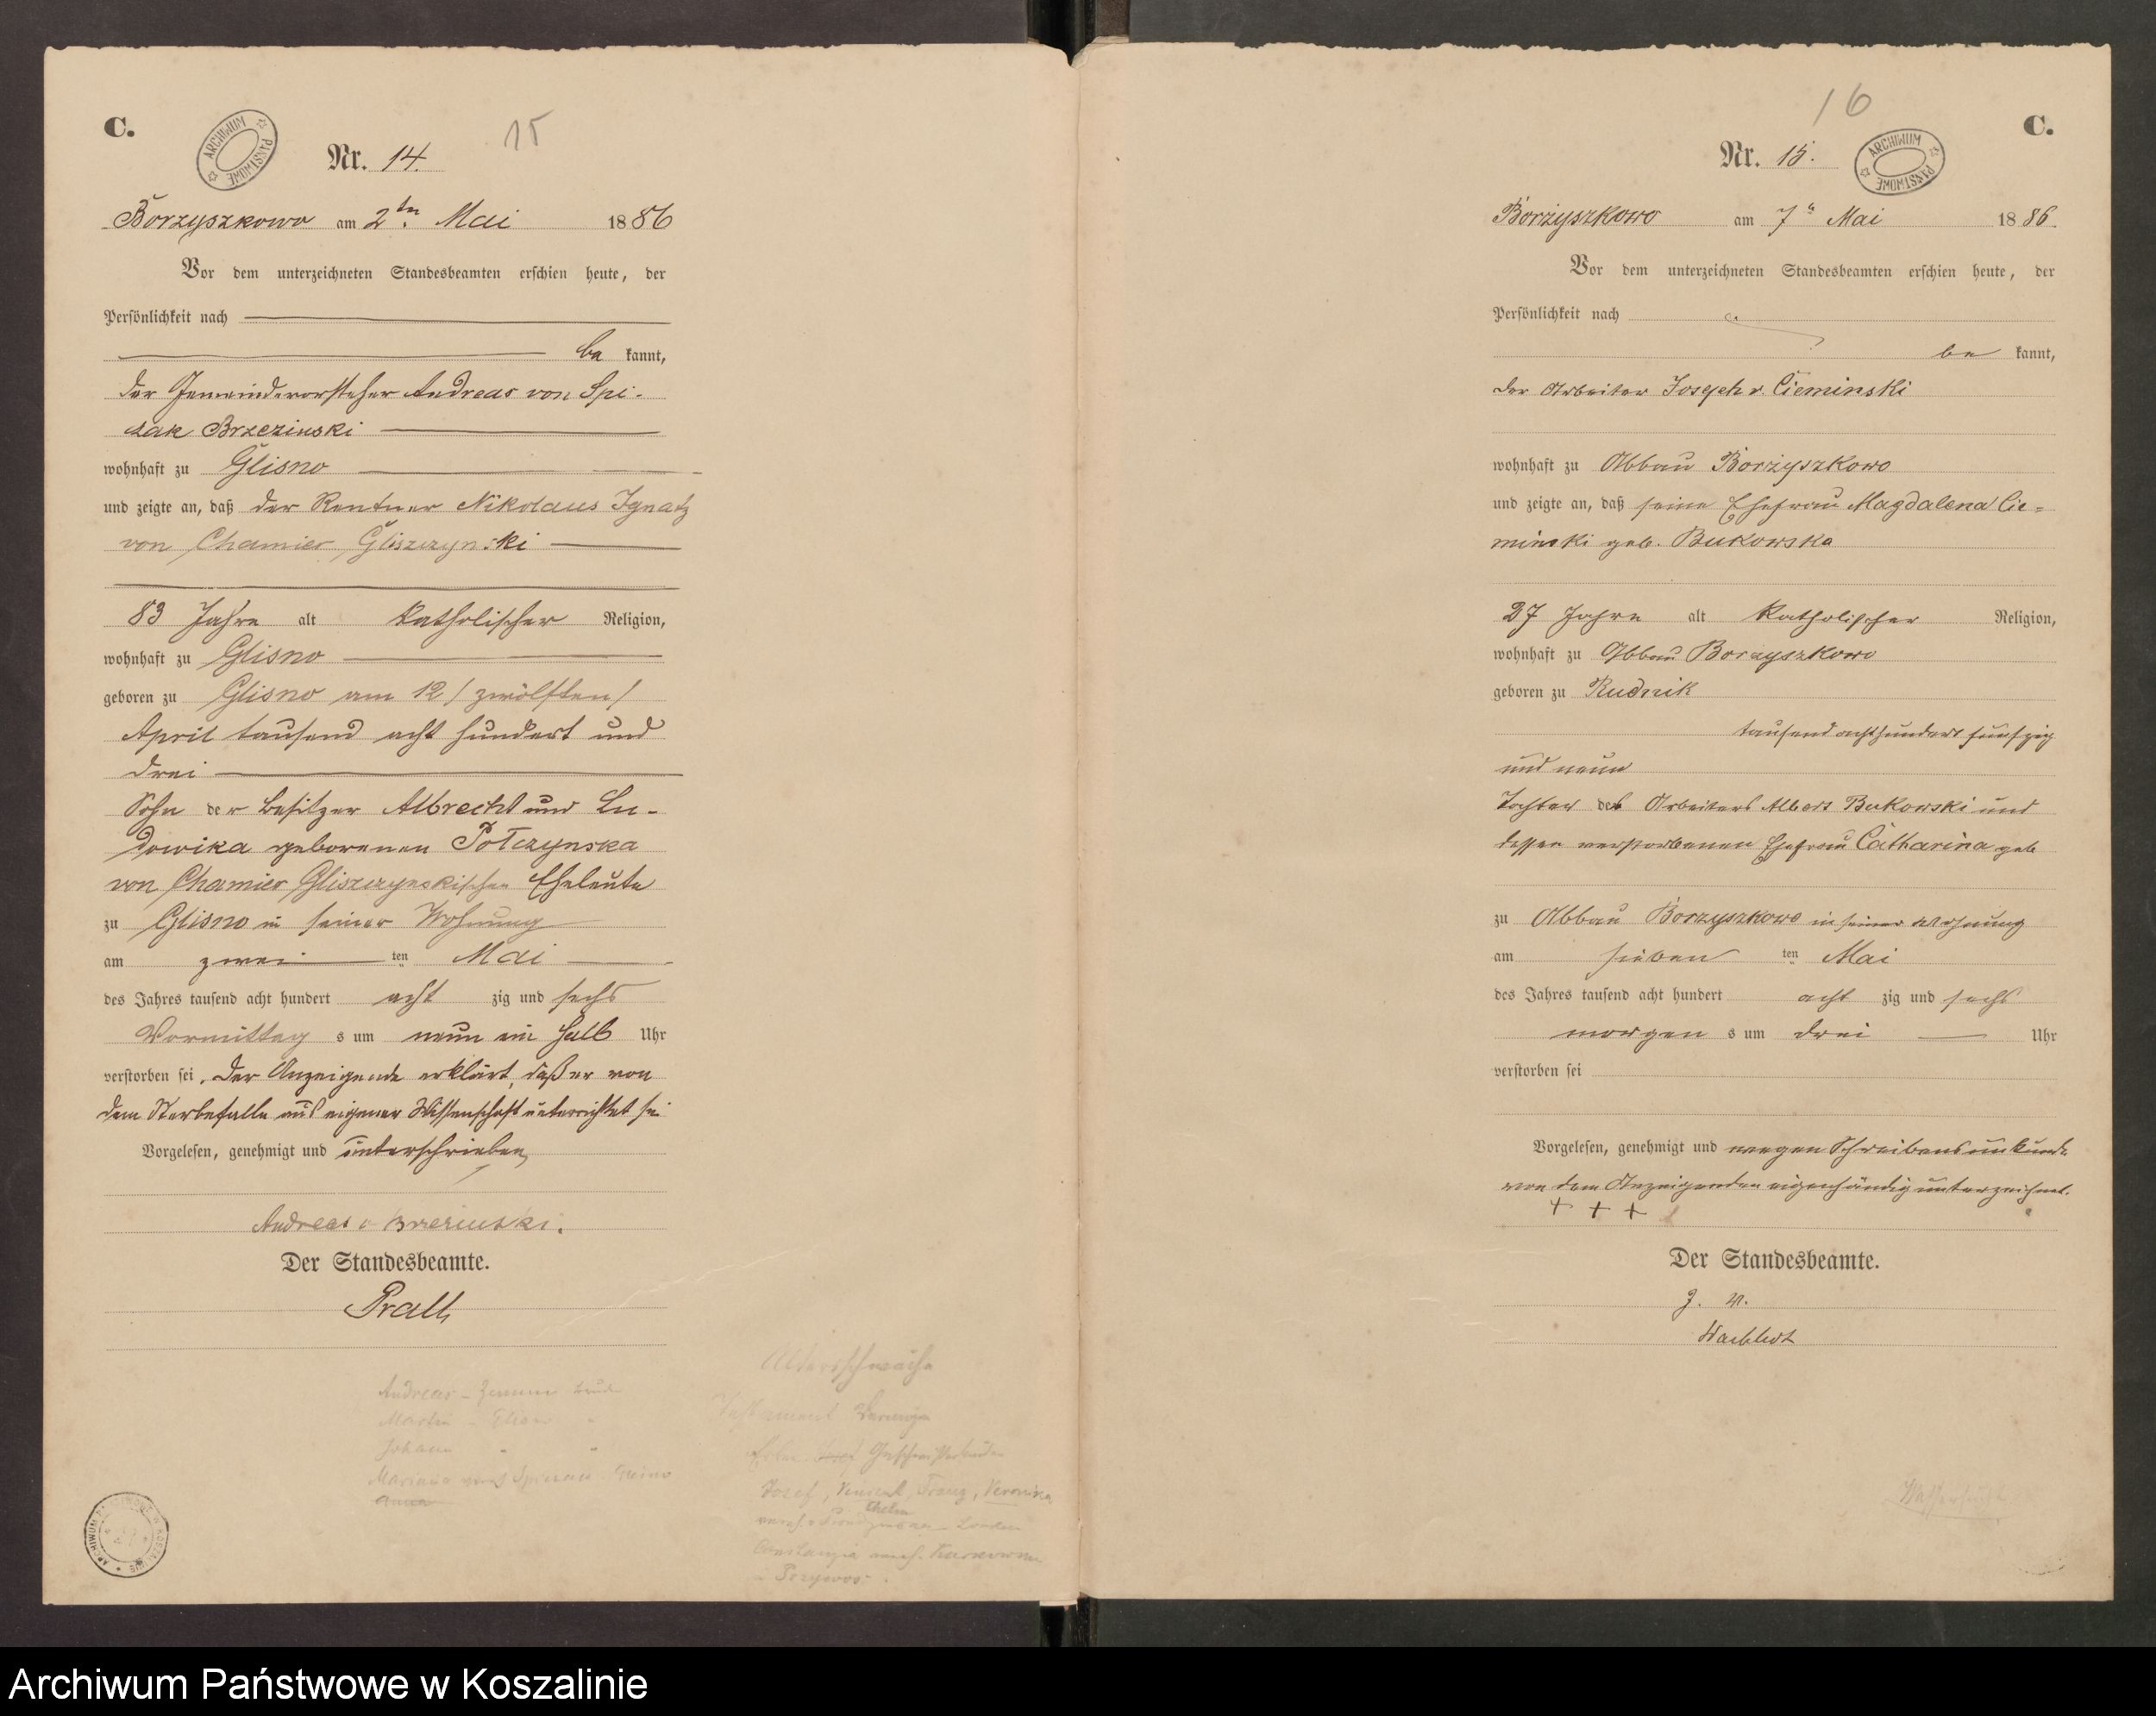 C.
ARCHIWUM PAŃSTWOWE
15
Nr. 14.
Borzyszkowo am 2ten Mai 1886
Vor dem unterzeichneten Standesbeamten erschien heute, der
Persönlichkeit nach
be kannt,
der Gemeindevorsteher Andreas von Spi-
czak Brzezinski
wohnhaft zu Glisno
und zeigte an, daß der Rentner Nikolaus Ignatz
von Chamier Gliszczynski
83 Jahre alt katholischer Religion,
wohnhaft zu Glisno
geboren zu Glisno am 12 / zwölften /
April tausend acht hundert und
drei
Sohn der Besitzer Albrecht und Lu-
dowika geborenen Połczynska
von Chamier Gliszczynskischen Eheleute
zu Glisno in seiner Wohnung
am zwei ten Mai
des Jahres tausend acht hundert acht zig und sechs
Vormittag s um neun ein halb Uhr
verstorben sei. Der Anzeigende erklärt, daß er von
dem Sterbefalle aus eigener Wissenschaft unterrichtet sei
Vorgelesen, genehmigt und unterschrieben
Andreas v Brzezinski.
Der Standesbeamte.
Prall
Altersschwäche
Andreas
Martin
Testament
Johann
Mariana
Anna
Josef, Vincent, Franz, Veronika
16
C.
Nr. 15.
ARCHIWUM PAŃSTWOWE
Borzyszkowo am 7ten Mai 1886.
Vor dem unterzeichneten Standesbeamten erschien heute, der
Persönlichkeit nach
be kannt,
der Arbeiter Joseph v. Cieminski
wohnhaft zu Abbau Borzyszkowo
und zeigte an, daß seine Ehefrau Magdalena Cie=
minski geb. Bukowska
27 Jahre alt katholischer Religion,
wohnhaft zu Abbau Borzyszkowo
geboren zu Rudnik
tausend achthundert fünfzig
und neun
Tochter des Arbeiters Albert Bukowski und
dessen verstorbenen Ehefrau Catharina geb
zu Abbau Borzyszkowo in seiner Wohnung
am sieben ten Mai
des Jahres tausend acht hundert acht zig und sechs
morgen s um drei Uhr
verstorben sei
Vorgelesen, genehmigt und wegen Schreibensunkunde
von dem Anzeigenden eigenhändig unterzeichnet.
+ + +
Der Standesbeamte.
J. V.
Wassersucht
Archiwum Państwowe w Koszalinie